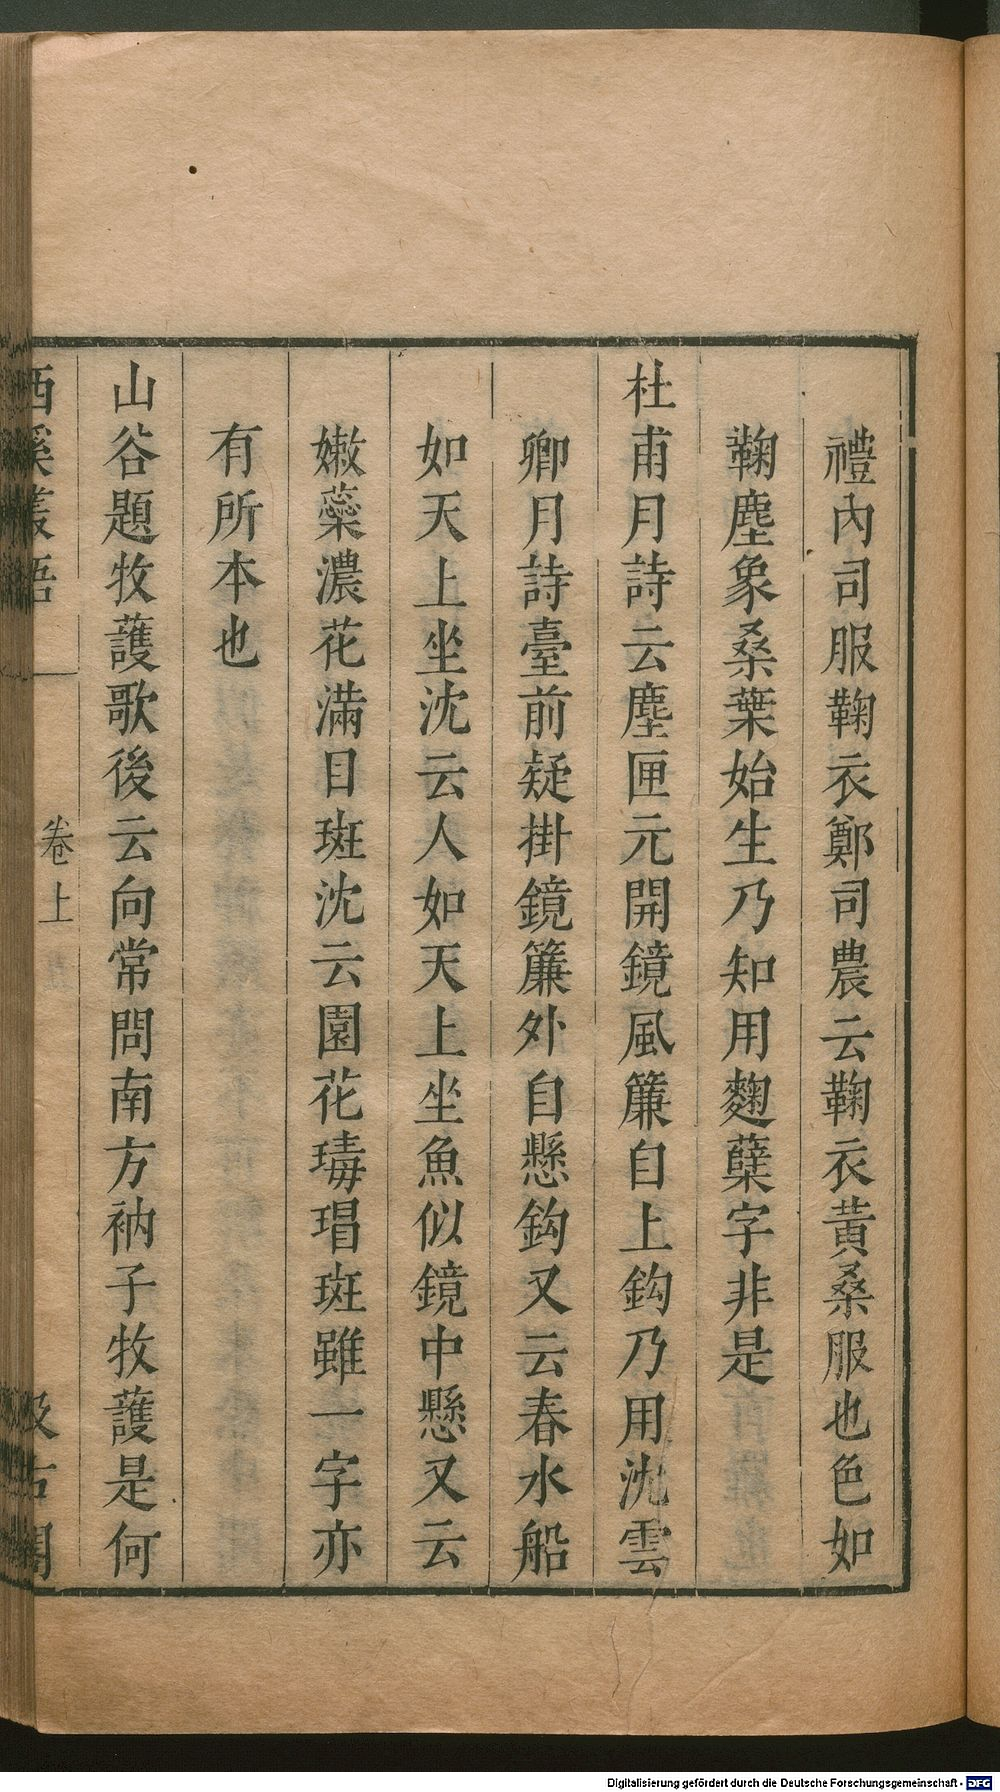 禮內司服鞠衣鄭司農云鞠衣黃桑服也色如
鞠塵象桑葉始生乃知用麴糵字非是
杜甫月詩云塵匣元開鏡風簾自上鈎乃用沈雲
卿月詩臺前疑掛鏡簾外自懸鈎又云春水船
如天上坐沈云人如天上坐魚似鏡中懸又云
嫩蘂濃花滿目斑沈云園花瑇瑁斑雖一字亦
有所本也
山谷題牧護歌後云向常問南方衲子牧護是何
西溪叢語
卷上
汲古閣
Digitalisierung gefördert durch die Deutsche Forschungsgemeinschaft - DFG